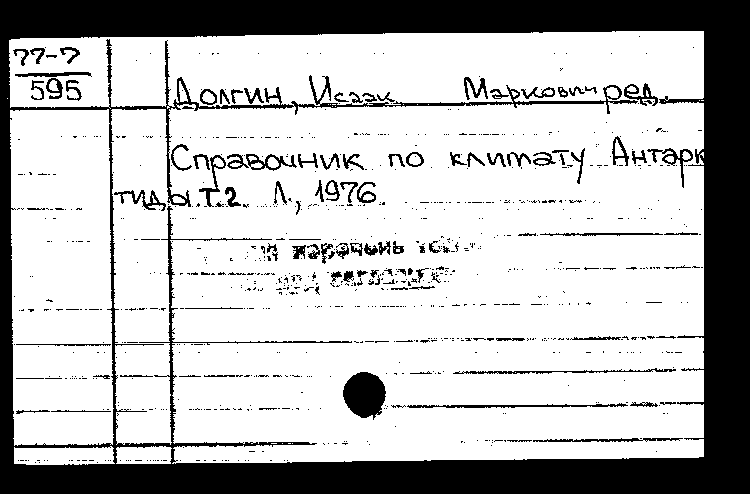 77-7
595
Долгин, Исаак Маркович ред.
Справочник по климату Антарк
тиды. Т.2. Л., 1976.